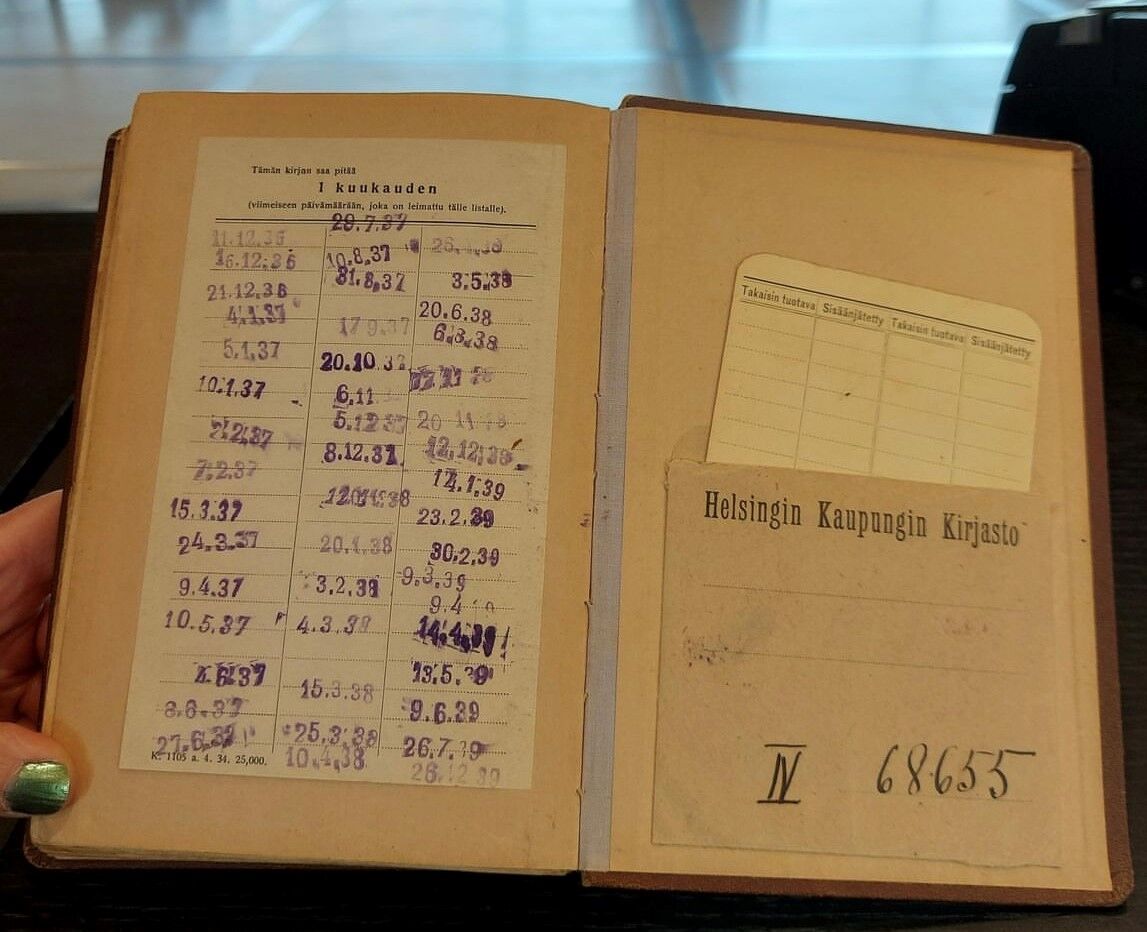 Tämän kirjan saa pitää
1 kuukauden
(viimeiseen päivämäärään, joka on leimattu tälle listalle).
11.12.36
16.12.36
21.12.36
4.1.37
5.1.37
10.1.37
2.2.37
7.2.37
15.3.37
24.3.37
9.4.37
10.5.37
4.6.37
8.6.37
27.6.37
29.7.37
10.8.37
31.8.37
17.9.37
20.10.37
6.11
5.12.37
8.12.37
20.1.38
3.2.38
4.3.38
15.3.38
25.3.38
10.4.38
3.5.38
20.6.38
6.8.38
20 11
12.12.38
14.1.39
23.2.39
30.2.39
9.3.39
9.4
14.4.39
13.5.39
9.6.39
26.7.39
26.12.39
K. 1105 a. 4. 34. 25,000.
Takaisin tuotava Sisäänjätetty Takaisin tuotava Sisäänjätetty
Helsingin Kaupungin Kirjasto
IV 68655